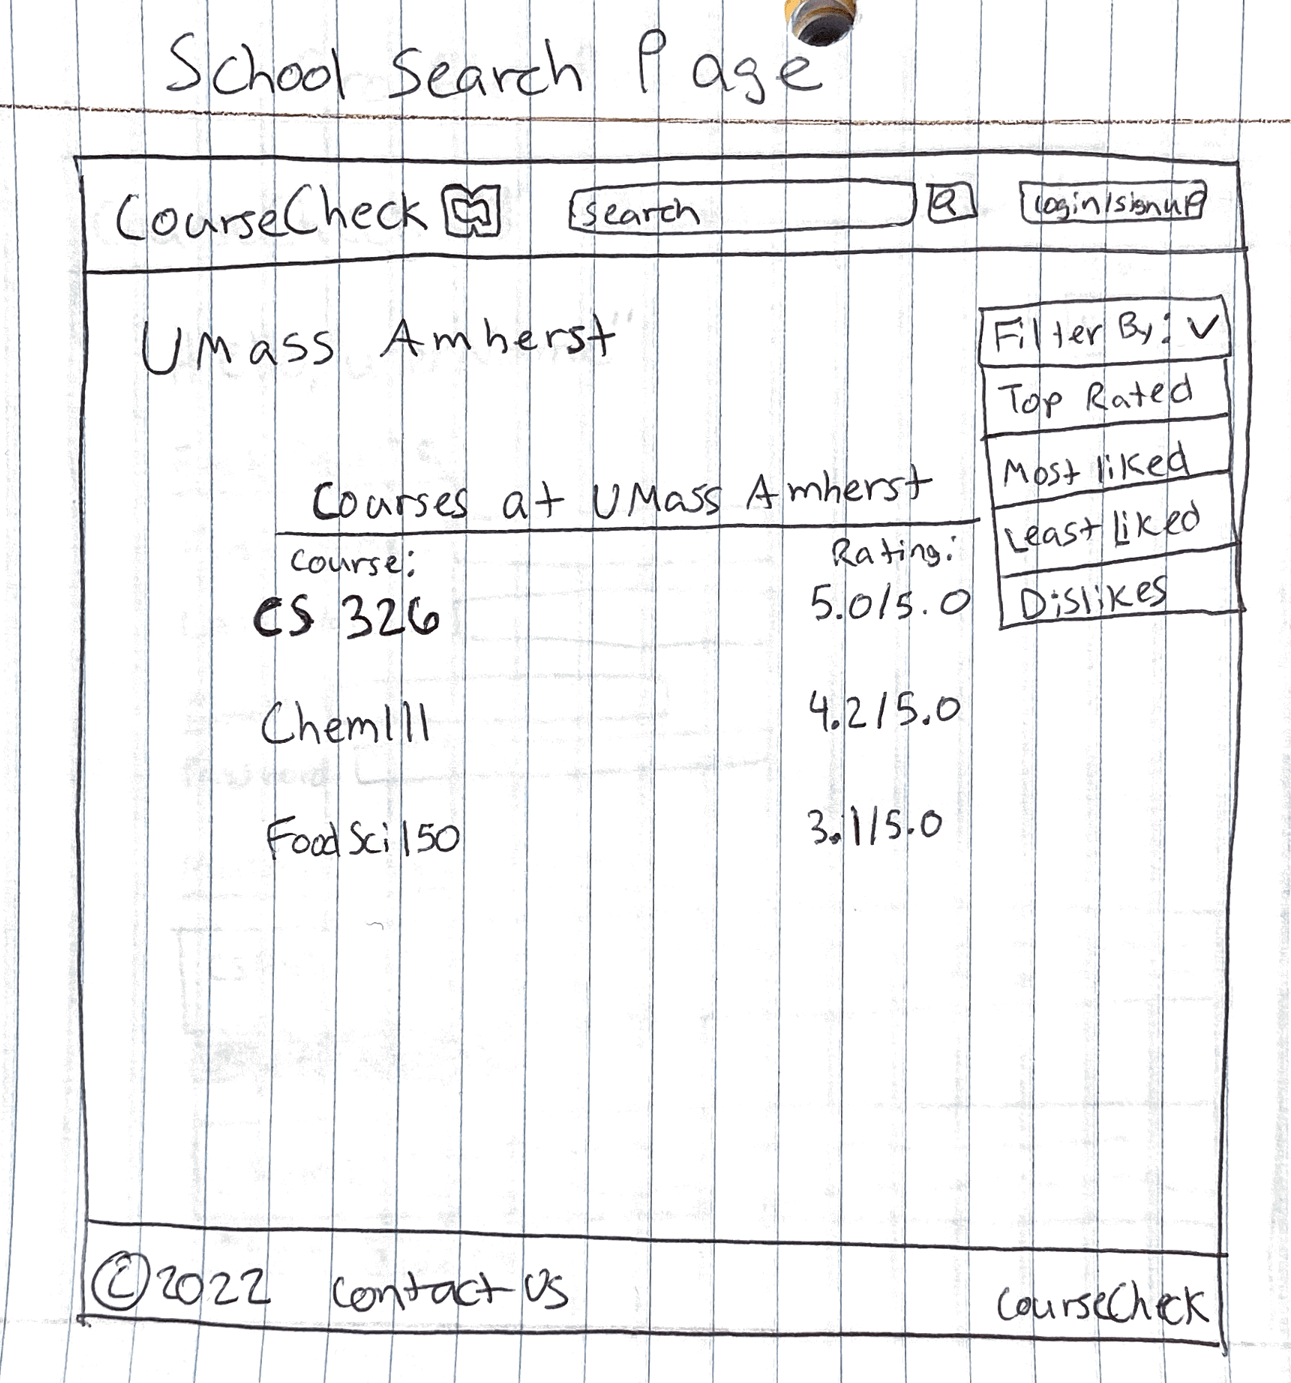 School Search Page
CourseCheck search login/signup
UMass Amherst
Filter By:
Top Rated
Most liked
Least Liked
Dislikes
Courses at UMass Amherst
Course: Rating:
CS 326 5.0/5.0
Chem111 4.2/5.0
FoodSci150 3.1/5.0
©2022 Contact Us CourseCheck